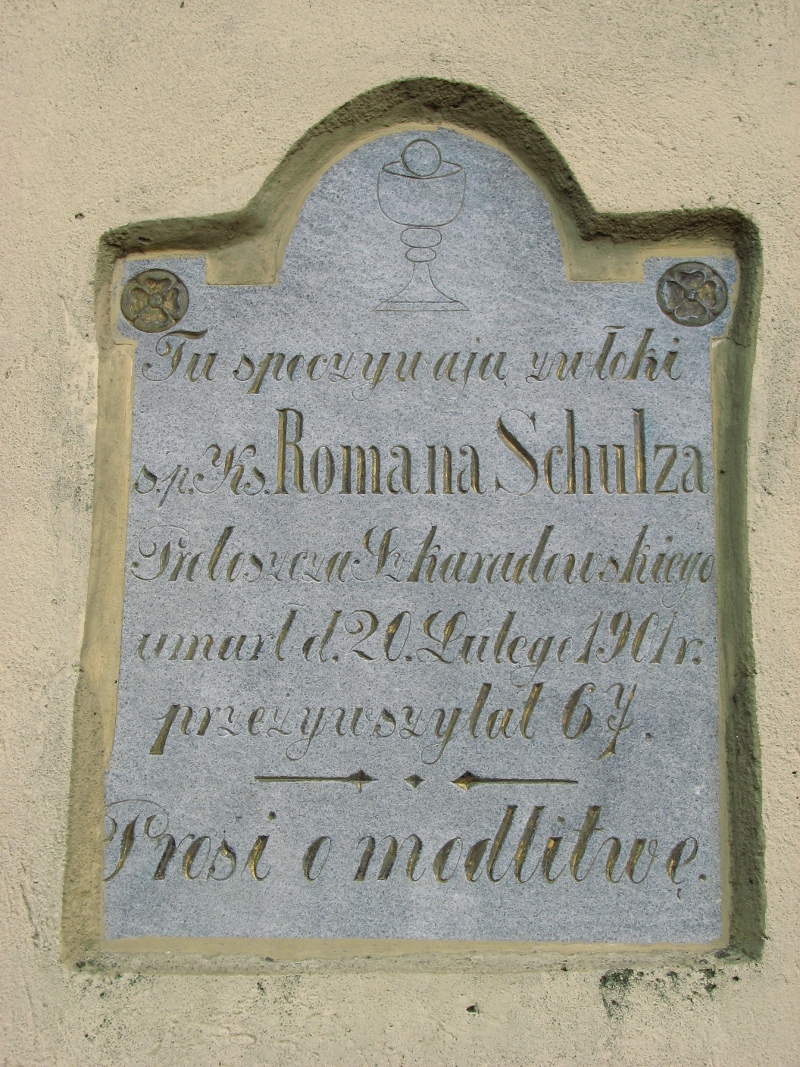 Tu spoczywają zwłoki
ś.p. Ks. Romana Schulza
Proboszcza Szkaradowskiego
umarł d. 20. Lutego 1901 r.
przeżywszy lat 67.
Prosi o modlitwę.